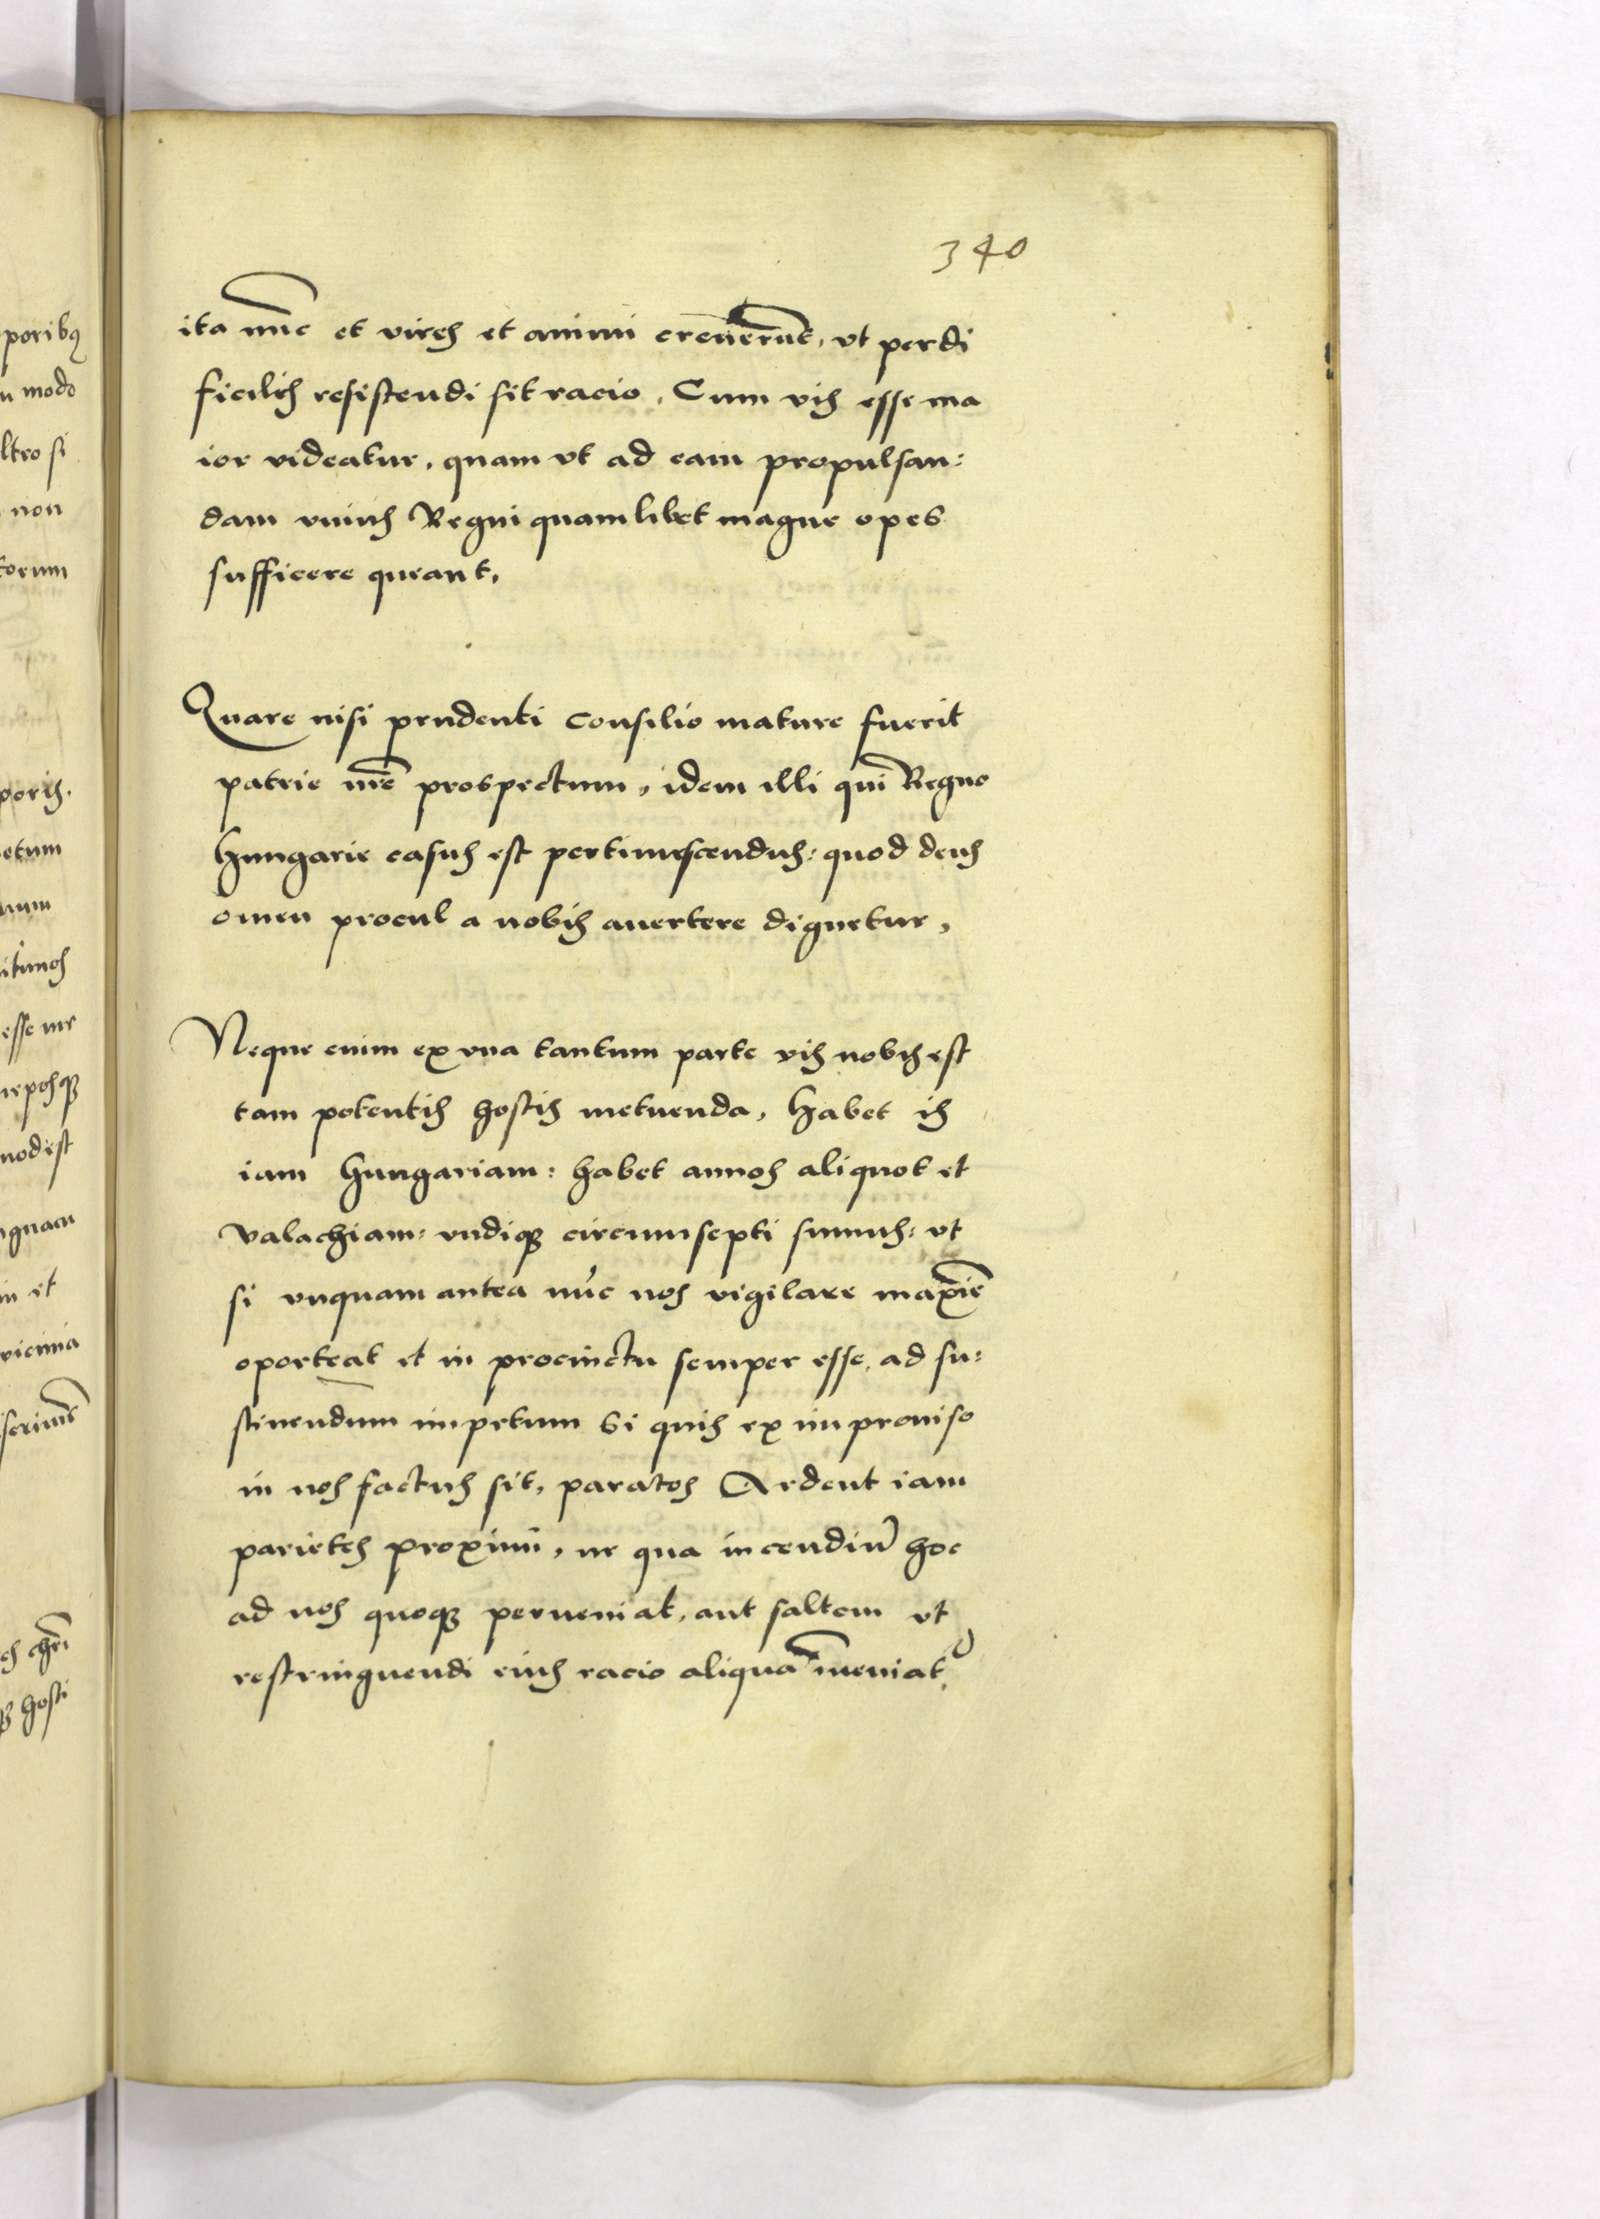 340
ita nūc et vires et animi creuerūt, vt perdi
ficilis resistendi sit racio, Cum vis esse ma
ior videatur, quam vt ad eam propulsan:
dam vnius Regni quamlibet magne opes
sufficere queant,
Quare nisi prudenti consilio mature fuerit
patrie nr̄e prospectum, idem illi qui Regno
Hungarie casus est pertimescendus: quod deus
omen procul a nobis auertere dignetur,
Neque enim ex vna tantum parte vis nobis est
tam potentis hostis metuenda, habet is
iam Hungariam: habet annos aliquot et
Valachiam: vndiqꝫ circumsepti sumus: vt
si vnquam antea nūc nos vigilare maxīe
oporteat et in procinctu semper esse, ad su:
stinendum impetum si quis ex improuiso
in nos factus sit, paratos Ardent iam
parietes proximi, ne qua incendiū hoc
ad nos quoqꝫ perueniat, aut saltem vt
restringuendi eius racio aliqua īueniat᷑,
poribꝰ
modo
ltro si
non
torum
poris.
etum
num
itimos
esse ne
neposqꝫ
nod est
gnam
in et
vicinia
chr̄i
hosti